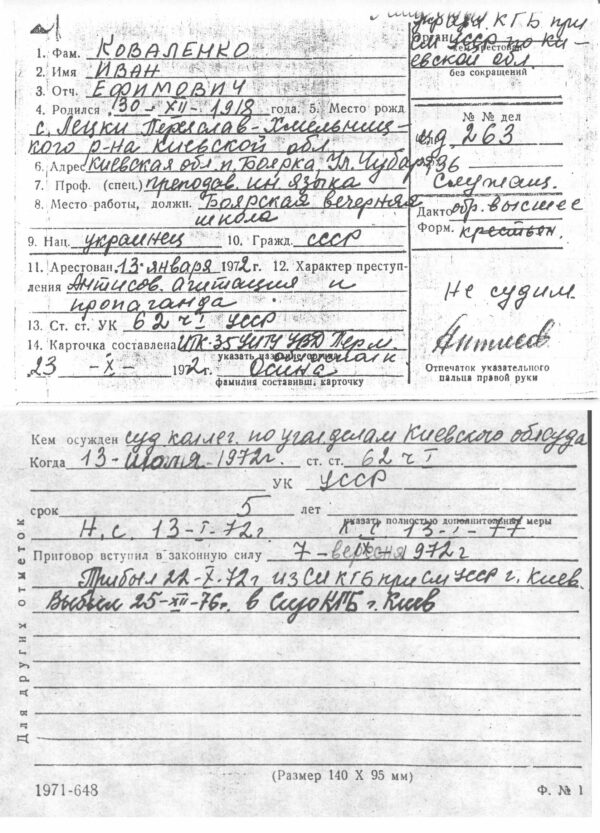 1. Фам. КОВАЛЕНКО
2. Имя ИВАН
3. Отч. ЕФИМОВИЧ
4. Родился 30-XII-1918 года. 5. Место рожд
с. Лецки Переяслав-Хмельниц-
кого р-на Киевской обл.
6. Адрес Киевская обл. п. Боярка, Ул. Чубаря 96
7. Проф. (спец.) преподав. ин. языка
8. Место работы, должн. Боярская вечерняя
школа
9. Нац. украинец 10. Гражд. СССР
11. Арестован 13 января 1972 г. 12. Характер преступ-
ления Антисов. агитация и
пропаганда
13. Ст. ст. УК 62 ч I УССР
14. Карточка составлена ИТК-35 УИТУ УВД Перм.
указать название
23 -X- 1972 г. Осина
фамилия составивш. карточку
Орган КГБ при
СМ УССР по Ки-
евской обл.
без сокращений
№ № дел
263
Служащ.
Дакто обр. высшее
Форм. крестьян.
Не судим.
Антисов
Отпечаток указательного
пальца правой руки
Кем осужден суд коллег. по угол. делам Киевского облсуда
Когда 13-июля-1972 г. ст. ст. 62 ч I
УК УССР
срок 5 лет
указать полностью дополнительные меры
Н. с. 13-I-72 г К. С 13-I-77
Приговор вступил в законную силу 7-вересня 1972 г
Прибыл 22-X-72 г из СИ КГБ при СМ УССР г. Киев.
Выбыл 25-XII-76 г. в СИЗО КГБ г. Киев
Для других отметок
(Размер 140 X 95 мм)
1971-648 Ф. № 1